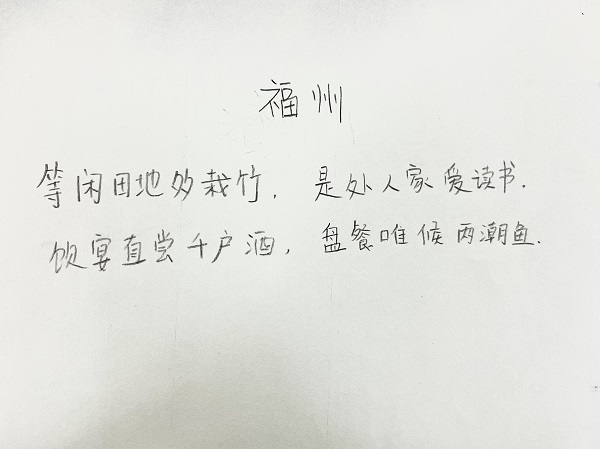 福州
等闲田地多栽竹，是处人家爱读书.
饮宴直尝千户酒，盘餐唯候两潮鱼.